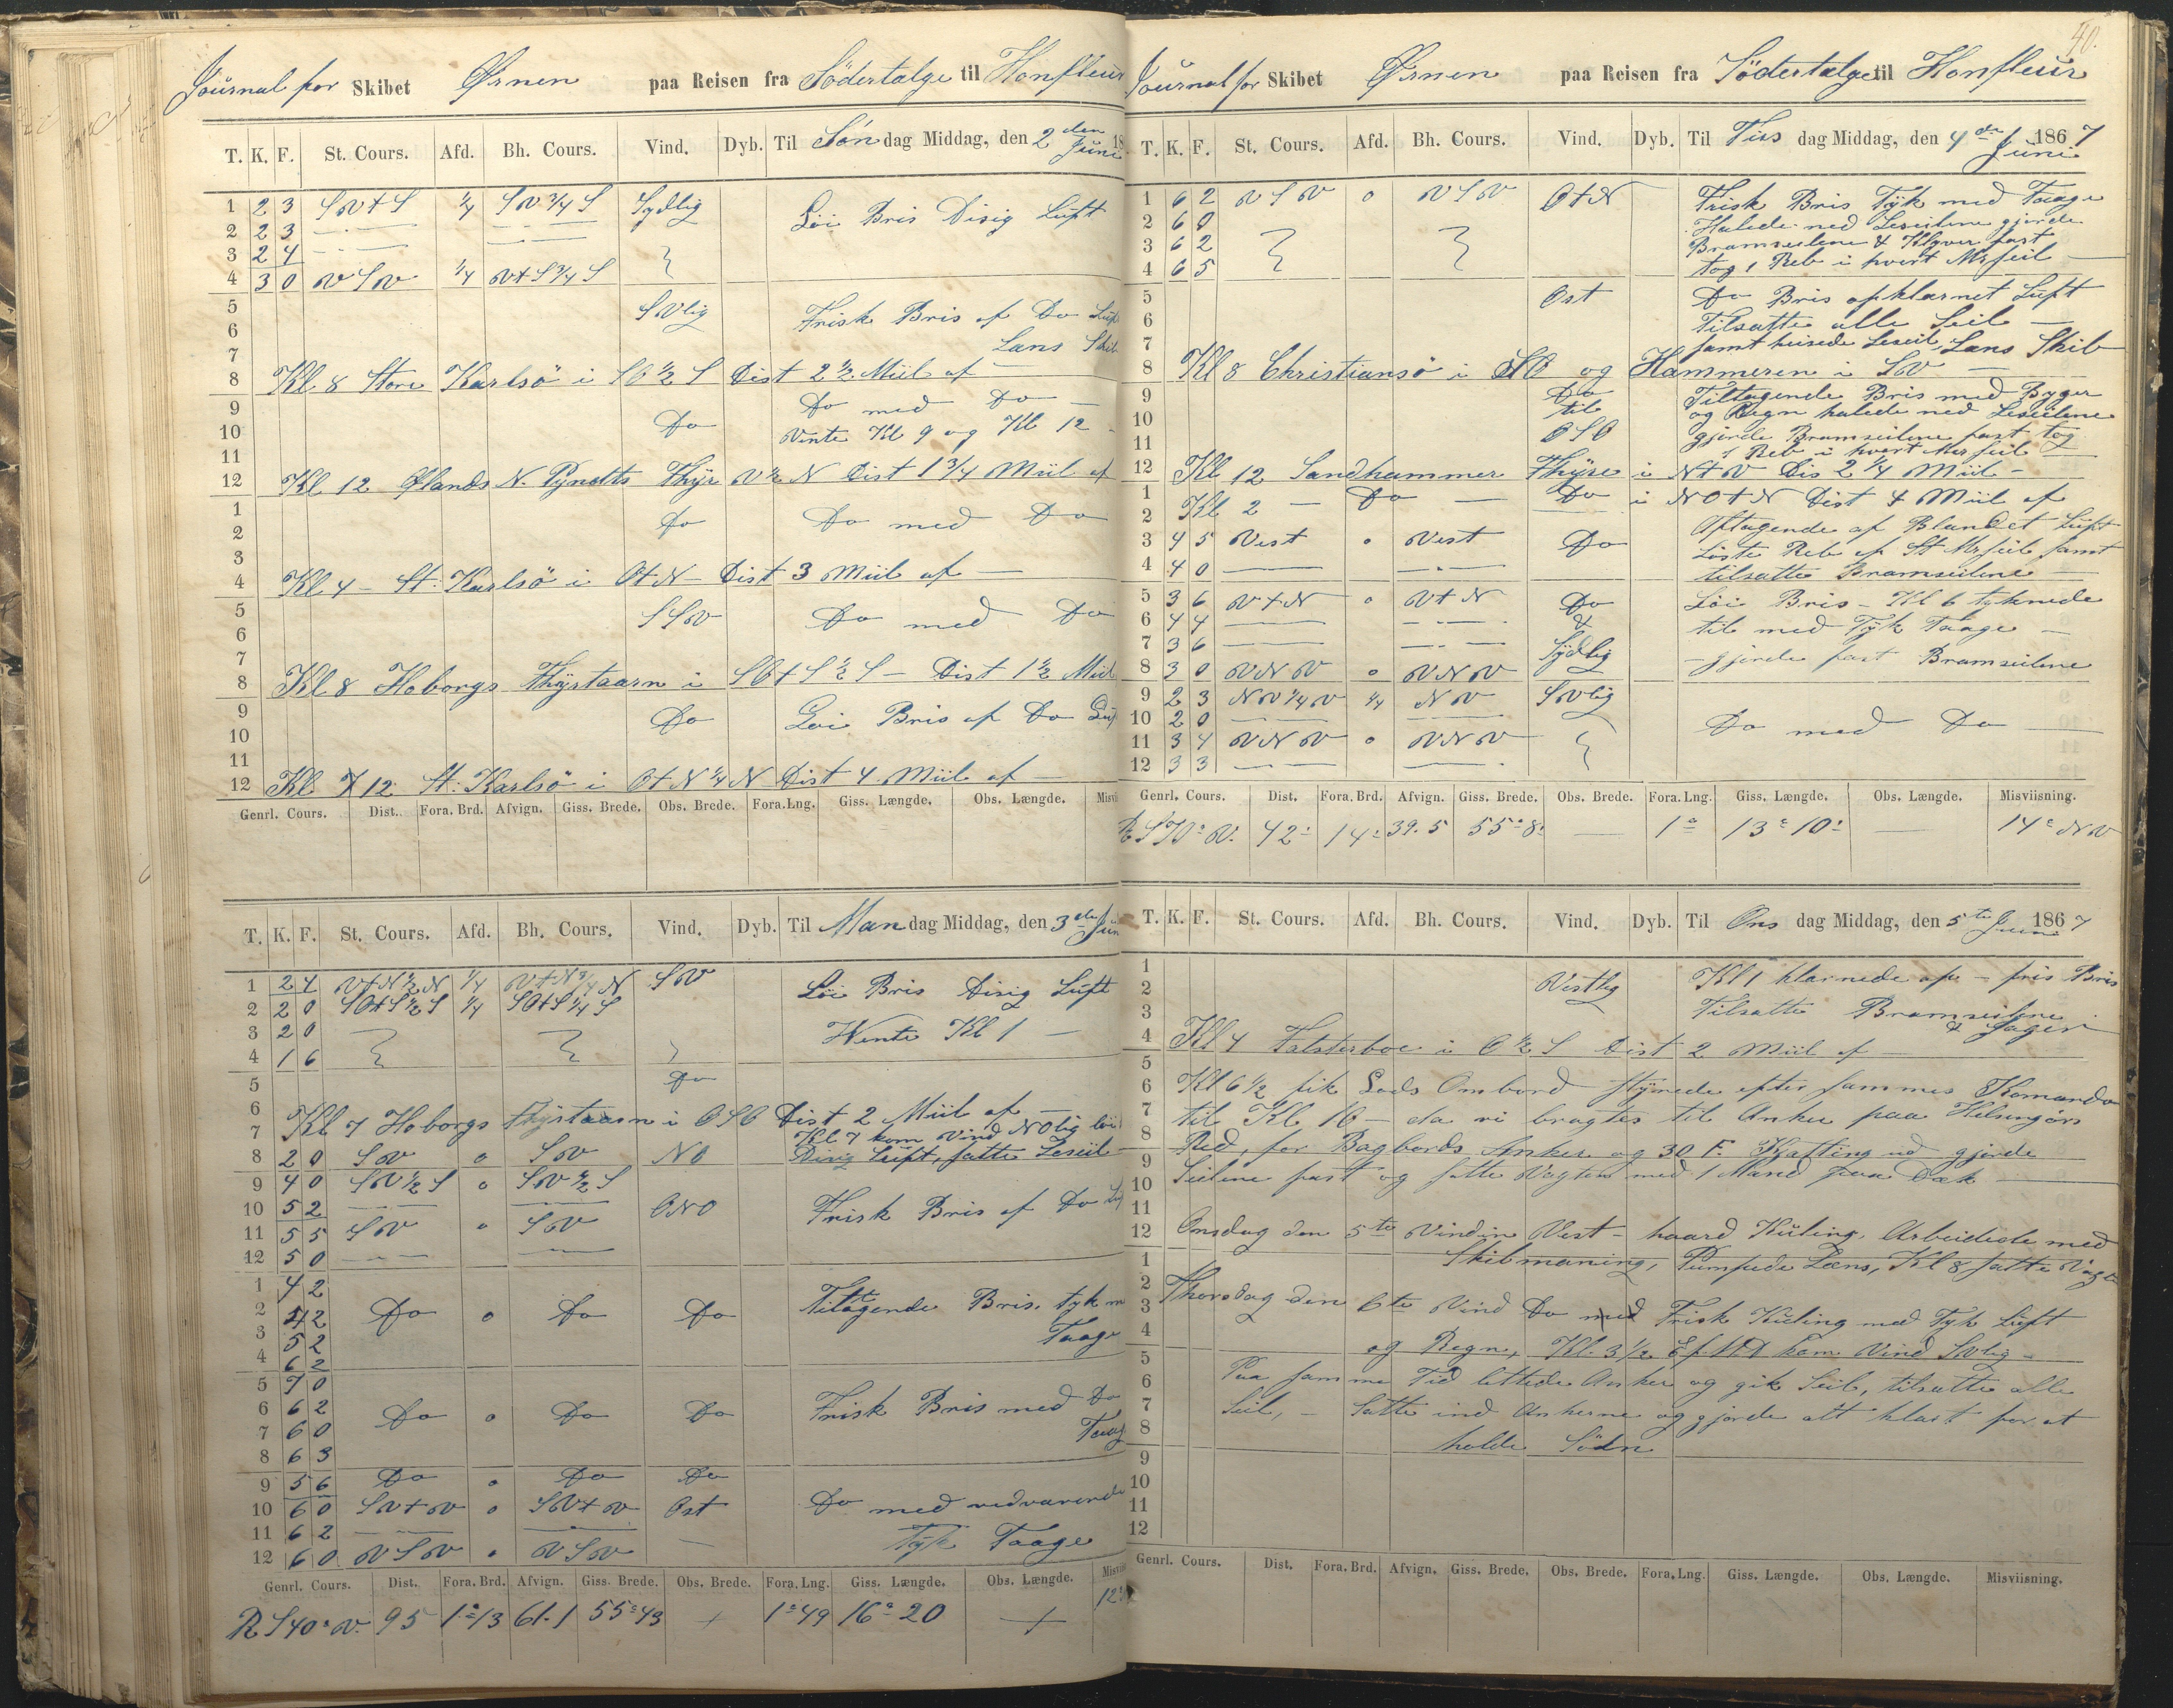 Journal for Skibet Ørnen paa Reisen fra Södertalge til Honfleur
T. K. F. St. Cours. Afd. Bh. Cours. Vind. Dyb. Til Søndag Middag, den 2den Juni 18
1 2 3 SVtS 1/4 SV 3/4 S Sydlig Løi Bris Disig Luft
2 2 3 — · — — · —
3 2 4 — · — — · —
4 3 0 VSV 1/4 VtS 3/4 S
5 SVlig Frisk Bris af Do Luft
6 Lans Skib
7
8 Kl 8 Store Karlsö i SO 1/2 S Dist 2 1/2 Miil af —
9 Do med Do —
10 Do Vente Kl 9 og Kl 12 -
11
12 Kl 12 Ølands N. Pynt Fhyr V 1/2 N Dist 1 3/4 Miil af
1 Do Do med Do
2
3
4 Kl 4 - St: Karlsö i OtN - Dist 3 Miil af —
5 SSV Do med Do
6
7
8 Kl 8 Hoborgs Fhyrtaarn i SOtS 1/2 S - Dist 1 1/2 Miil
9 Do Løi Bris af Do Luf
10
11
12 Kl 12 St: Karlsö i OtN 1/4 N Dist 4 Miil af —
Genrl. Cours. Dist. Fora. Brd. Afvign. Giss. Brede. Obs. Brede. Fora. Lng. Giss. Længde. Obs. Længde. Misvi
T. K. F. St. Cours. Afd. Bh. Cours. Vind. Dyb. Til Mandag Middag, den 3die Jun
1 2 4 VtN 1/2 N 1/4 VtN 3/4 N SV Løi Bris Disig Luft
2 2 0 SOtS 1/2 S 1/4 SOtS 1/4 S
3 2 0 Wente Kl 1 —
4 1 6
5 Do
6
7 Kl 7 Hoborgs Fhyrtaarn i OSO Dist 2 Miil af —
Kl 7 kom Vind NOlig løi
8 2 0 SV 0 SV NO Disig Luft, satte Leseil -
9 4 0 SV 1/2 S 0 SV 1/2 S
10 5 2 — · — — · — ONO Frisk Bris af Do Luf
11 5 5 SV 0 SV
12 5 0 — · — — · —
1 4 2
2 4 2 Do 0 Do Do Tiltagende Bris. tyk m
3 5 2 Taage
4 6 2
5 7 0
6 6 2 Do 0 Do Do Frisk Bris med Do
7 6 0 Taag
8 6 3
9 5 6 Do 0 Do Do
10 6 0 SVtV 0 SVtV Ost Do med vedvarende
11 6 2 — · — ——
12 6 0 VSV 0 VSV — Tyk Taage
Genrl. Cours. Dist. Fora. Brd. Afvign. Giss. Brede. Obs. Brede. Fora. Lng. Giss. Længde. Obs. Længde. Misvis
R S 40° V. 95 1° 13 61.1 55° 43 + 1° 49 16° 20 + 12°
40.
Journal for Skibet Ørnen paa Reisen fra Södertalge til Honfleur
T. K. F. St. Cours. Afd. Bh. Cours. Vind. Dyb. Til Tirsdag Middag, den 4de Juni 1867
1 6 2 VSV 0 VSV OtN Frisk Bris Tyk med Taage
2 6 0 Halede ned Leseilene gjorde
3 6 2 Bramseilene & Klyver fast
4 6 5 tog 1 Reb i hvert Mrseil —
5 Ost Do Bris opklarnet Luft
6 Tilsatte alle Seil —
7 samt heisede Leseil, Lans Skib
8 Kl 8 Christiansö i SO og Hammeren i SV —
9 Do Tiltagende Bris med Byger
10 til og Regn halede ned Leseilene
11 OSO gjorde Bramseilene fast tog
1 Reb i hvert Merseil
12 Kl 12 Sandhammer Fhyre i NtV Dis 2 1/4 Miil -
1 Kl 2 — Do — Do i NOtN Dist 4 Miil af
2 Aftagende af Blandet Luft
3 4 5 Vest 0 Vest Do Løste Reb af St Mrseil samt
4 4 0 —— — · — tilsatte Bramseilene —
5 3 6 VtN 0 VtN Do Løi Bris - Kl 6 tyknede
6 4 4 —— — · — & til med Tyk Taage —
7 3 6 —— — · — Sydlig
8 3 0 VNV 0 VNV - gjorde fast Bramseilene
9 2 3 NV 1/4 V 1/4 NV SVlig
10 2 0 —— —— Do med Do —
11 3 4 VNV 0 VNV
12 3 3 — — — ·
Genrl. Cours. Dist. Fora. Brd. Afvign. Giss. Brede. Obs. Brede. Fora. Lng. Giss. Længde. Obs. Længde. Misviisning.
R S 70° V. 42' 14' 39.5 55° 8' — 1° 13° 10' — 14° NV
T. K. F. St. Cours. Afd. Bh. Cours. Vind. Dyb. Til Onsdag Middag, den 5te Juni 1867
1 Kl 1 klarnede op - fris Bris
2 Vestlig
3 Tilsatte Bramseilene
& Jager
4 Kl 4 Falsterboe i O 1/2 S Dist 2 Miil af —
5
6 Kl 6 1/2 fik Lods Ombord styrede efter sammes Komando
7 til Kl 10 - da vi bragtes til Anker paa Helsingørs
8 Red, for Bagbords Anker og 30 F. Kjætting ud gjorde
9
10 Seilene fast og satte Vagten med 1 Mand paa Dæk —
11
12 Onsdag den 5te Vinden Vest - haard Kuling, Arbeidede med
1 Skibmaning, Pumpede Læns, Kl 8 satte Vagt
2 Thorsdag den 6te Vind Do med Frisk Kuling med Tyk Luft
3
4 og Regn, Kl. 3 1/2 Ef MD kom Vind SVlig -
5
6 Paa samme Tid lettede Anker og gik Seil, tilsatte alle
7 Seil, - Satte ind Ankerne og gjorde alt klart for at
8 holde Söen
9
10
11
12
Genrl. Cours. Dist. Fora. Brd. Afvign. Giss. Brede. Obs. Brede. Fora. Lng. Giss. Længde. Obs. Længde. Misviisning.